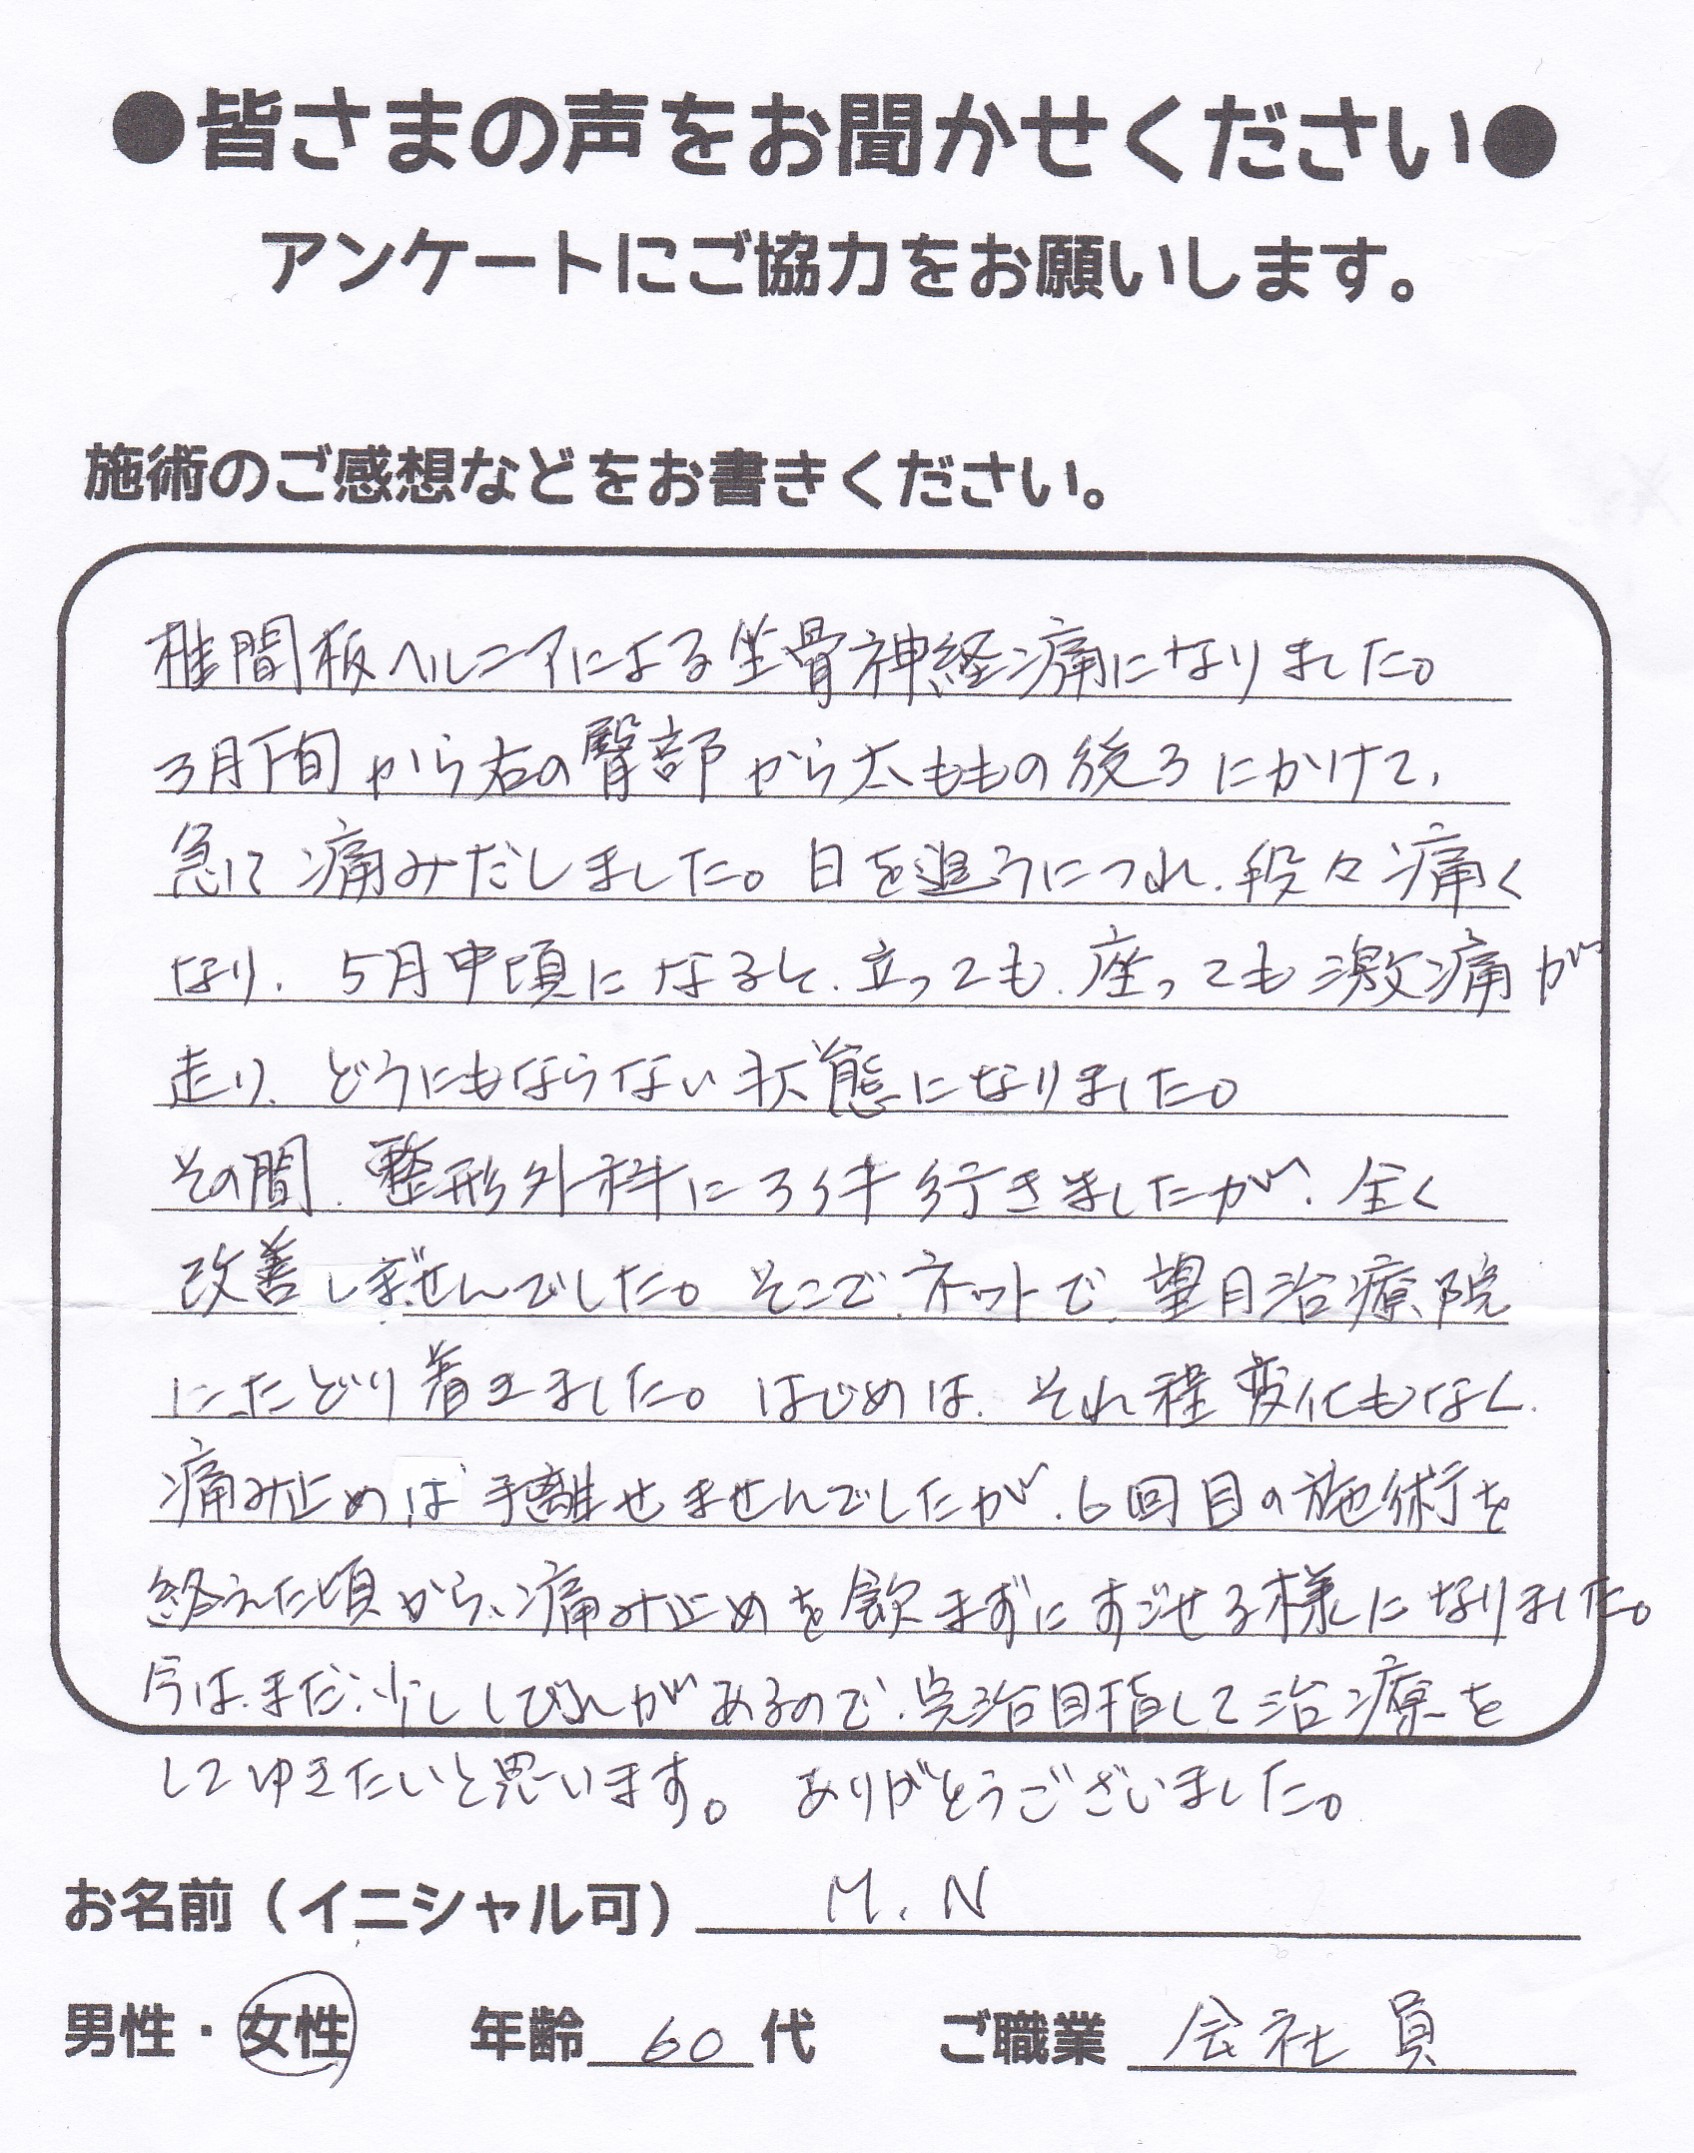 ●皆さまの声をお聞かせください●
アンケートにご協力をお願いします。
施術のご感想などをお書きください。
椎間板ヘルニアによる坐骨神経痛になりました。
3月下旬から右の臀部から太ももの後ろにかけて、
急に痛みだしました。日を追うにつれ、段々痛く
なり、5月中頃になると、立っても、座っても激痛が
走り、どうにもならない状態になりました。
その間、整形外科に3件行きましたが、全く
改善しませんでした。そこで、ネットで、望月治療院
にたどり着きました。はじめは、それ程変化もなく、
痛み止めは手離せませんでしたが、6回目の施術を
終えた頃から、痛み止めを飲まずにすごせる様になりました。
今は、まだ、少ししびれがあるので、完治目指して治療を
してゆきたいと思います。 ありがとうございました。
お名前（イニシャル可） M.N
男性・女性 年齢 60 代 ご職業 会社員